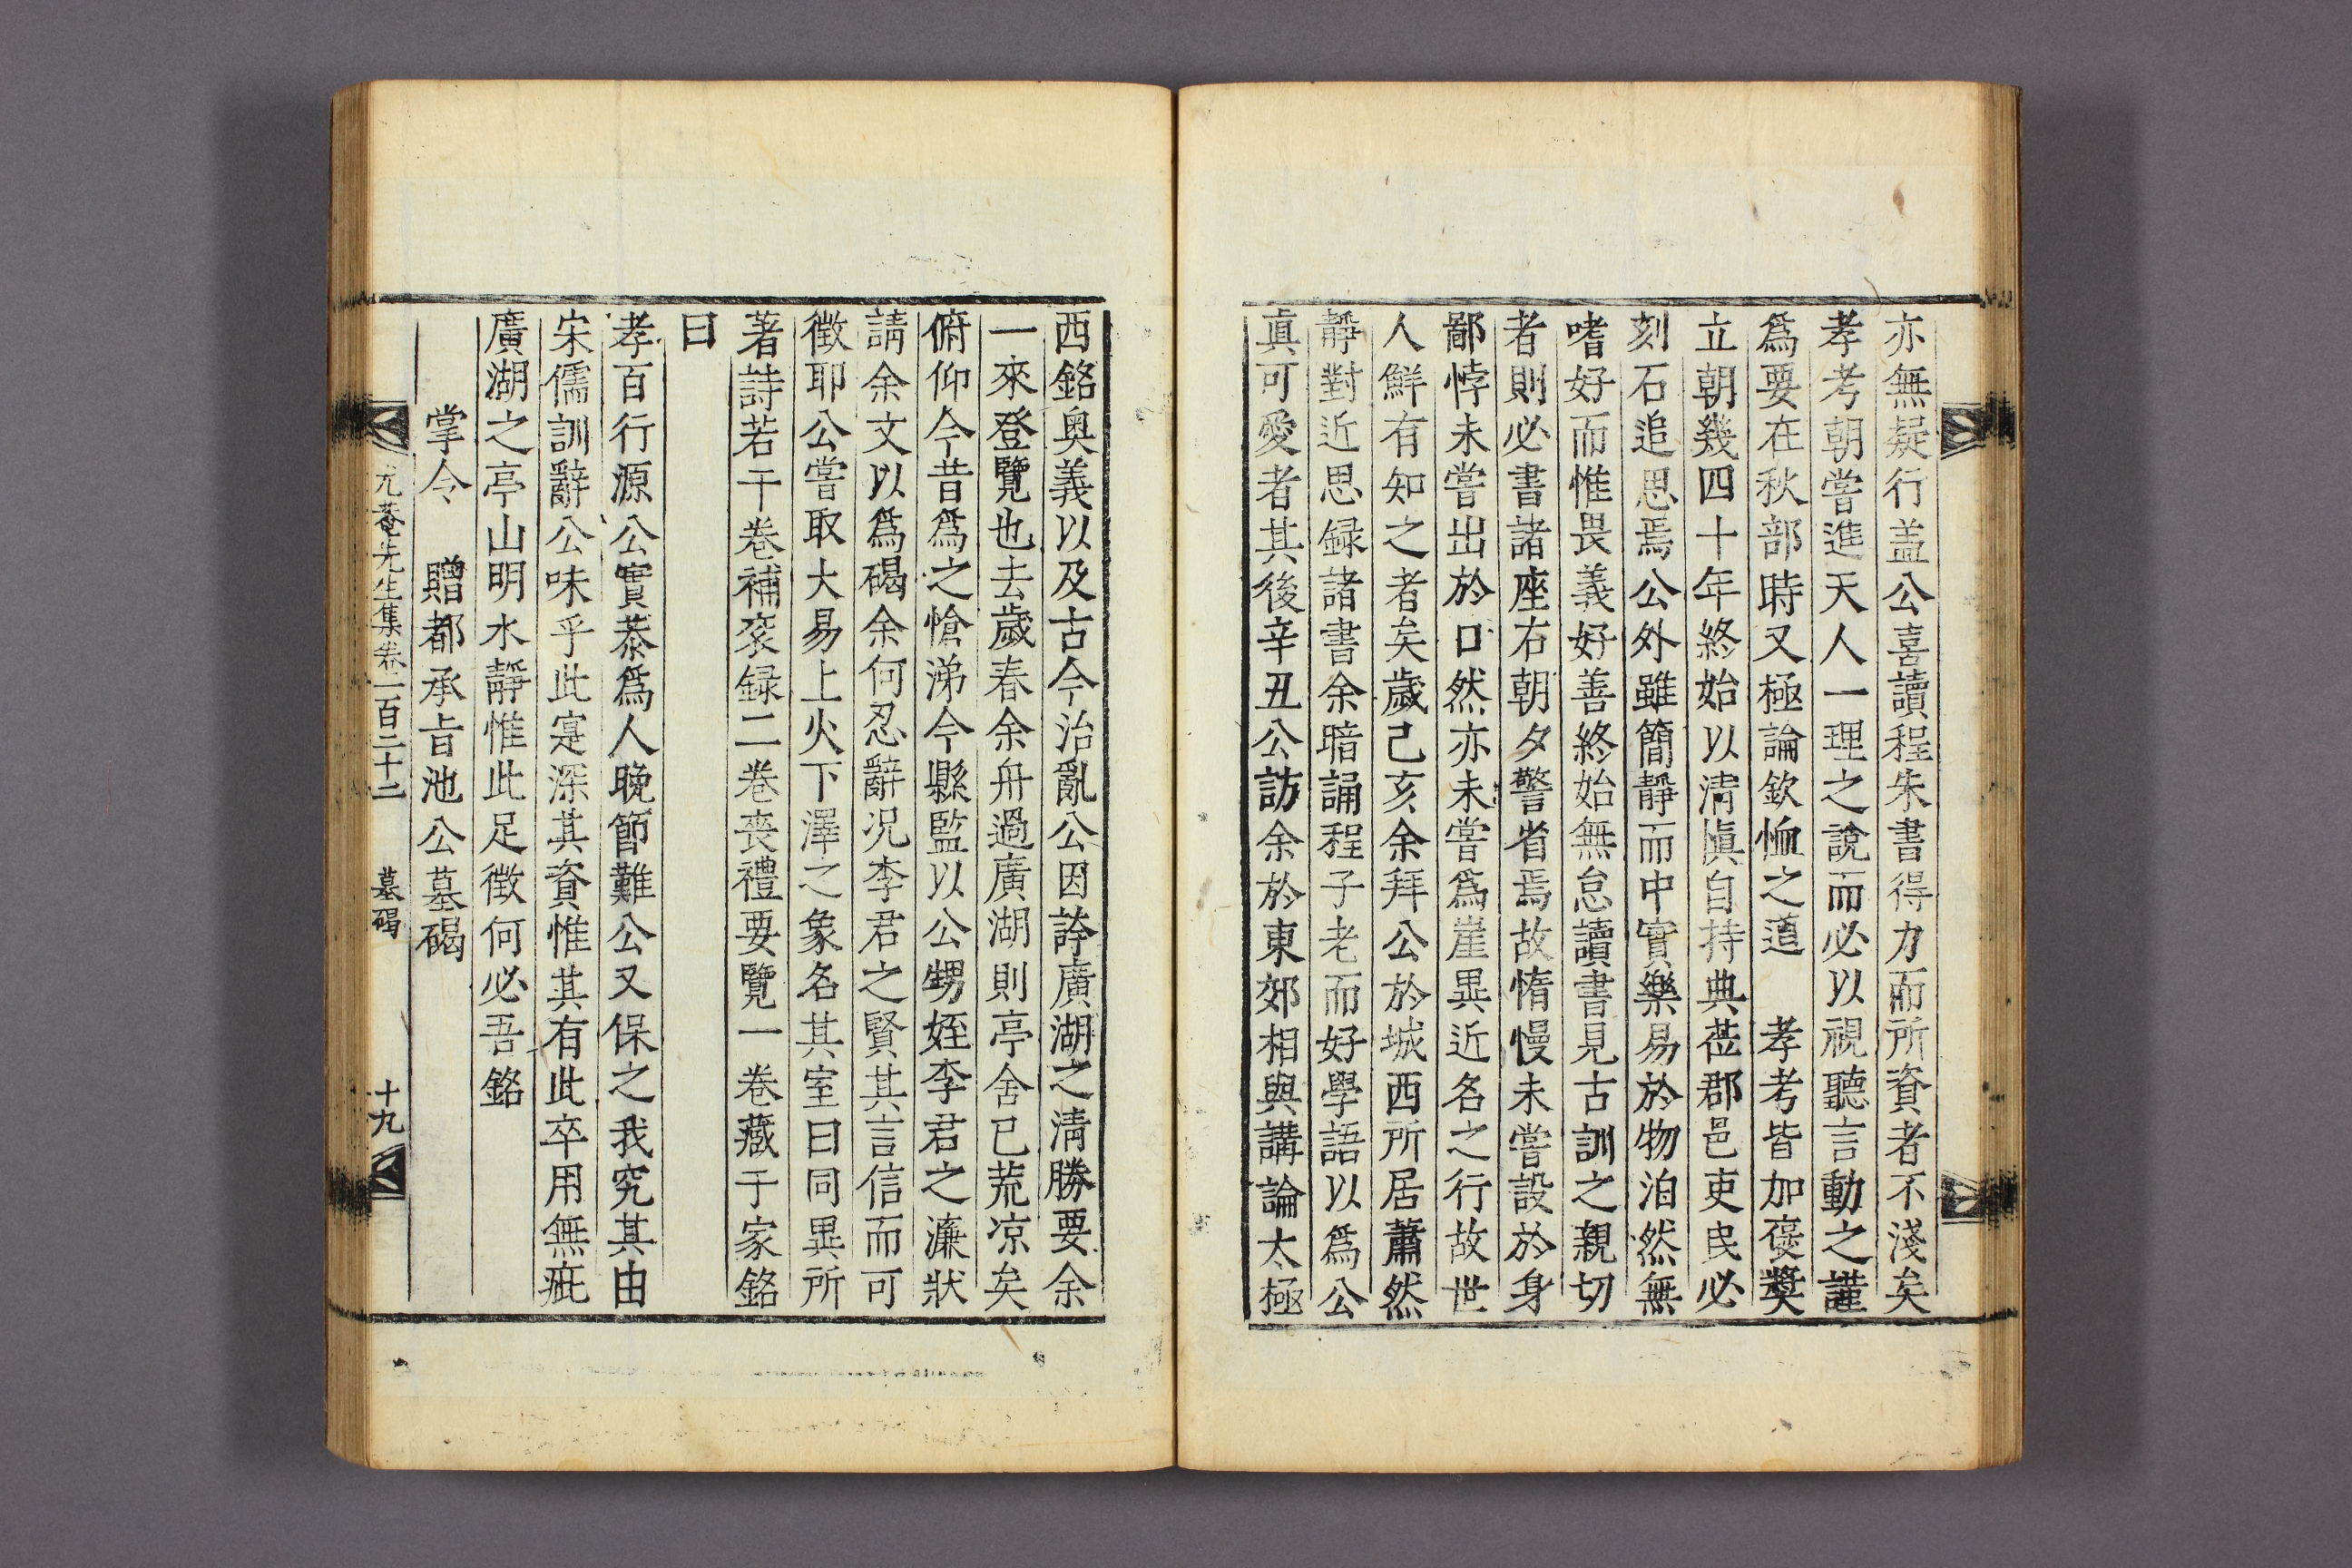 亦無疑行盖公喜讀程朱書得力而所資者不淺矣
孝考朝嘗進天人一理之說而必以視聽言動之謹
爲要在秋部時又極論欽恤之道　孝考皆加褒奬
立朝幾四十年終始以清愼自持典莅郡邑吏民必
刻石追思焉公外雖簡靜而中實樂易於物泊然無
嗜好而惟畏義好善終始無怠讀書見古訓之親切
者則必書諸座右朝夕警省焉故惰慢未嘗設於身
鄙悖未嘗出於口然亦未嘗爲崖異近名之行故世
人鮮有知之者矣歲己亥余拜公於城西所居蕭然
靜對近思録諸書余暗誦程子老而好學語以爲公
眞可愛者其後辛丑公訪余於東郊相與講論太極
西銘奥義以及古今治亂公因誇廣湖之清勝要余
一來登覽也去歲春余舟過廣湖則亭舍已荒凉矣
俯仰今昔爲之愴涕今縣監以公甥姪李君之濂狀
請余文以爲碣余何忍辭况李君之賢其言信而可
徵耶公嘗取大易上火下澤之象名其室曰同異所
著詩若干卷補衮録二卷喪禮要覽一卷藏于家銘
曰
孝百行源公實恭爲人晚節難公又保之我究其由
宋儒訓辭公味乎此寔深其資惟其有此卒用無疵
廣湖之亭山明水靜惟此足徵何必吾銘
掌令　贈都承旨池公墓碣
尤菴先生集卷一百二十二　墓碣　十九